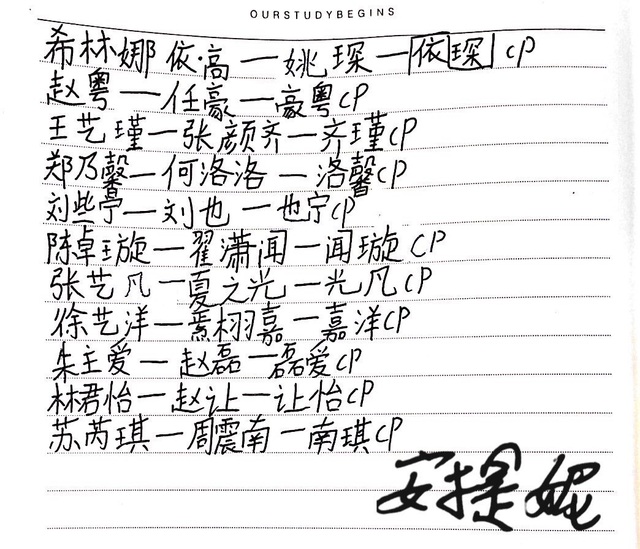 OURSTUDYBEGINS
希林娜依·高一姚琛一依琛CP
赵粤一任豪一豪粤CP
王艺瑾一张颜齐一齐瑾CP
郑乃馨一何洛洛一洛馨CP
刘些宁一刘也一也宁CP
陈卓璇一翟潇闻一闻璇CP
张艺凡一夏之光一光凡CP
徐艺洋一焉栩嘉一嘉洋CP
朱主爱一赵磊一磊爱CP
林君怡一赵让一让怡CP
苏芮琪一周震南一南琪CP
安提妮